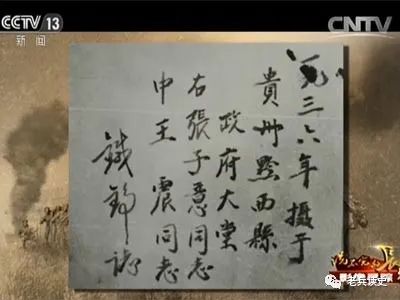 CCTV 13
新闻
CNTV
一九三六年攝于
貴州黔西縣
政府大堂
右張子意同志
中王震同志
鐵錚
老兵读史